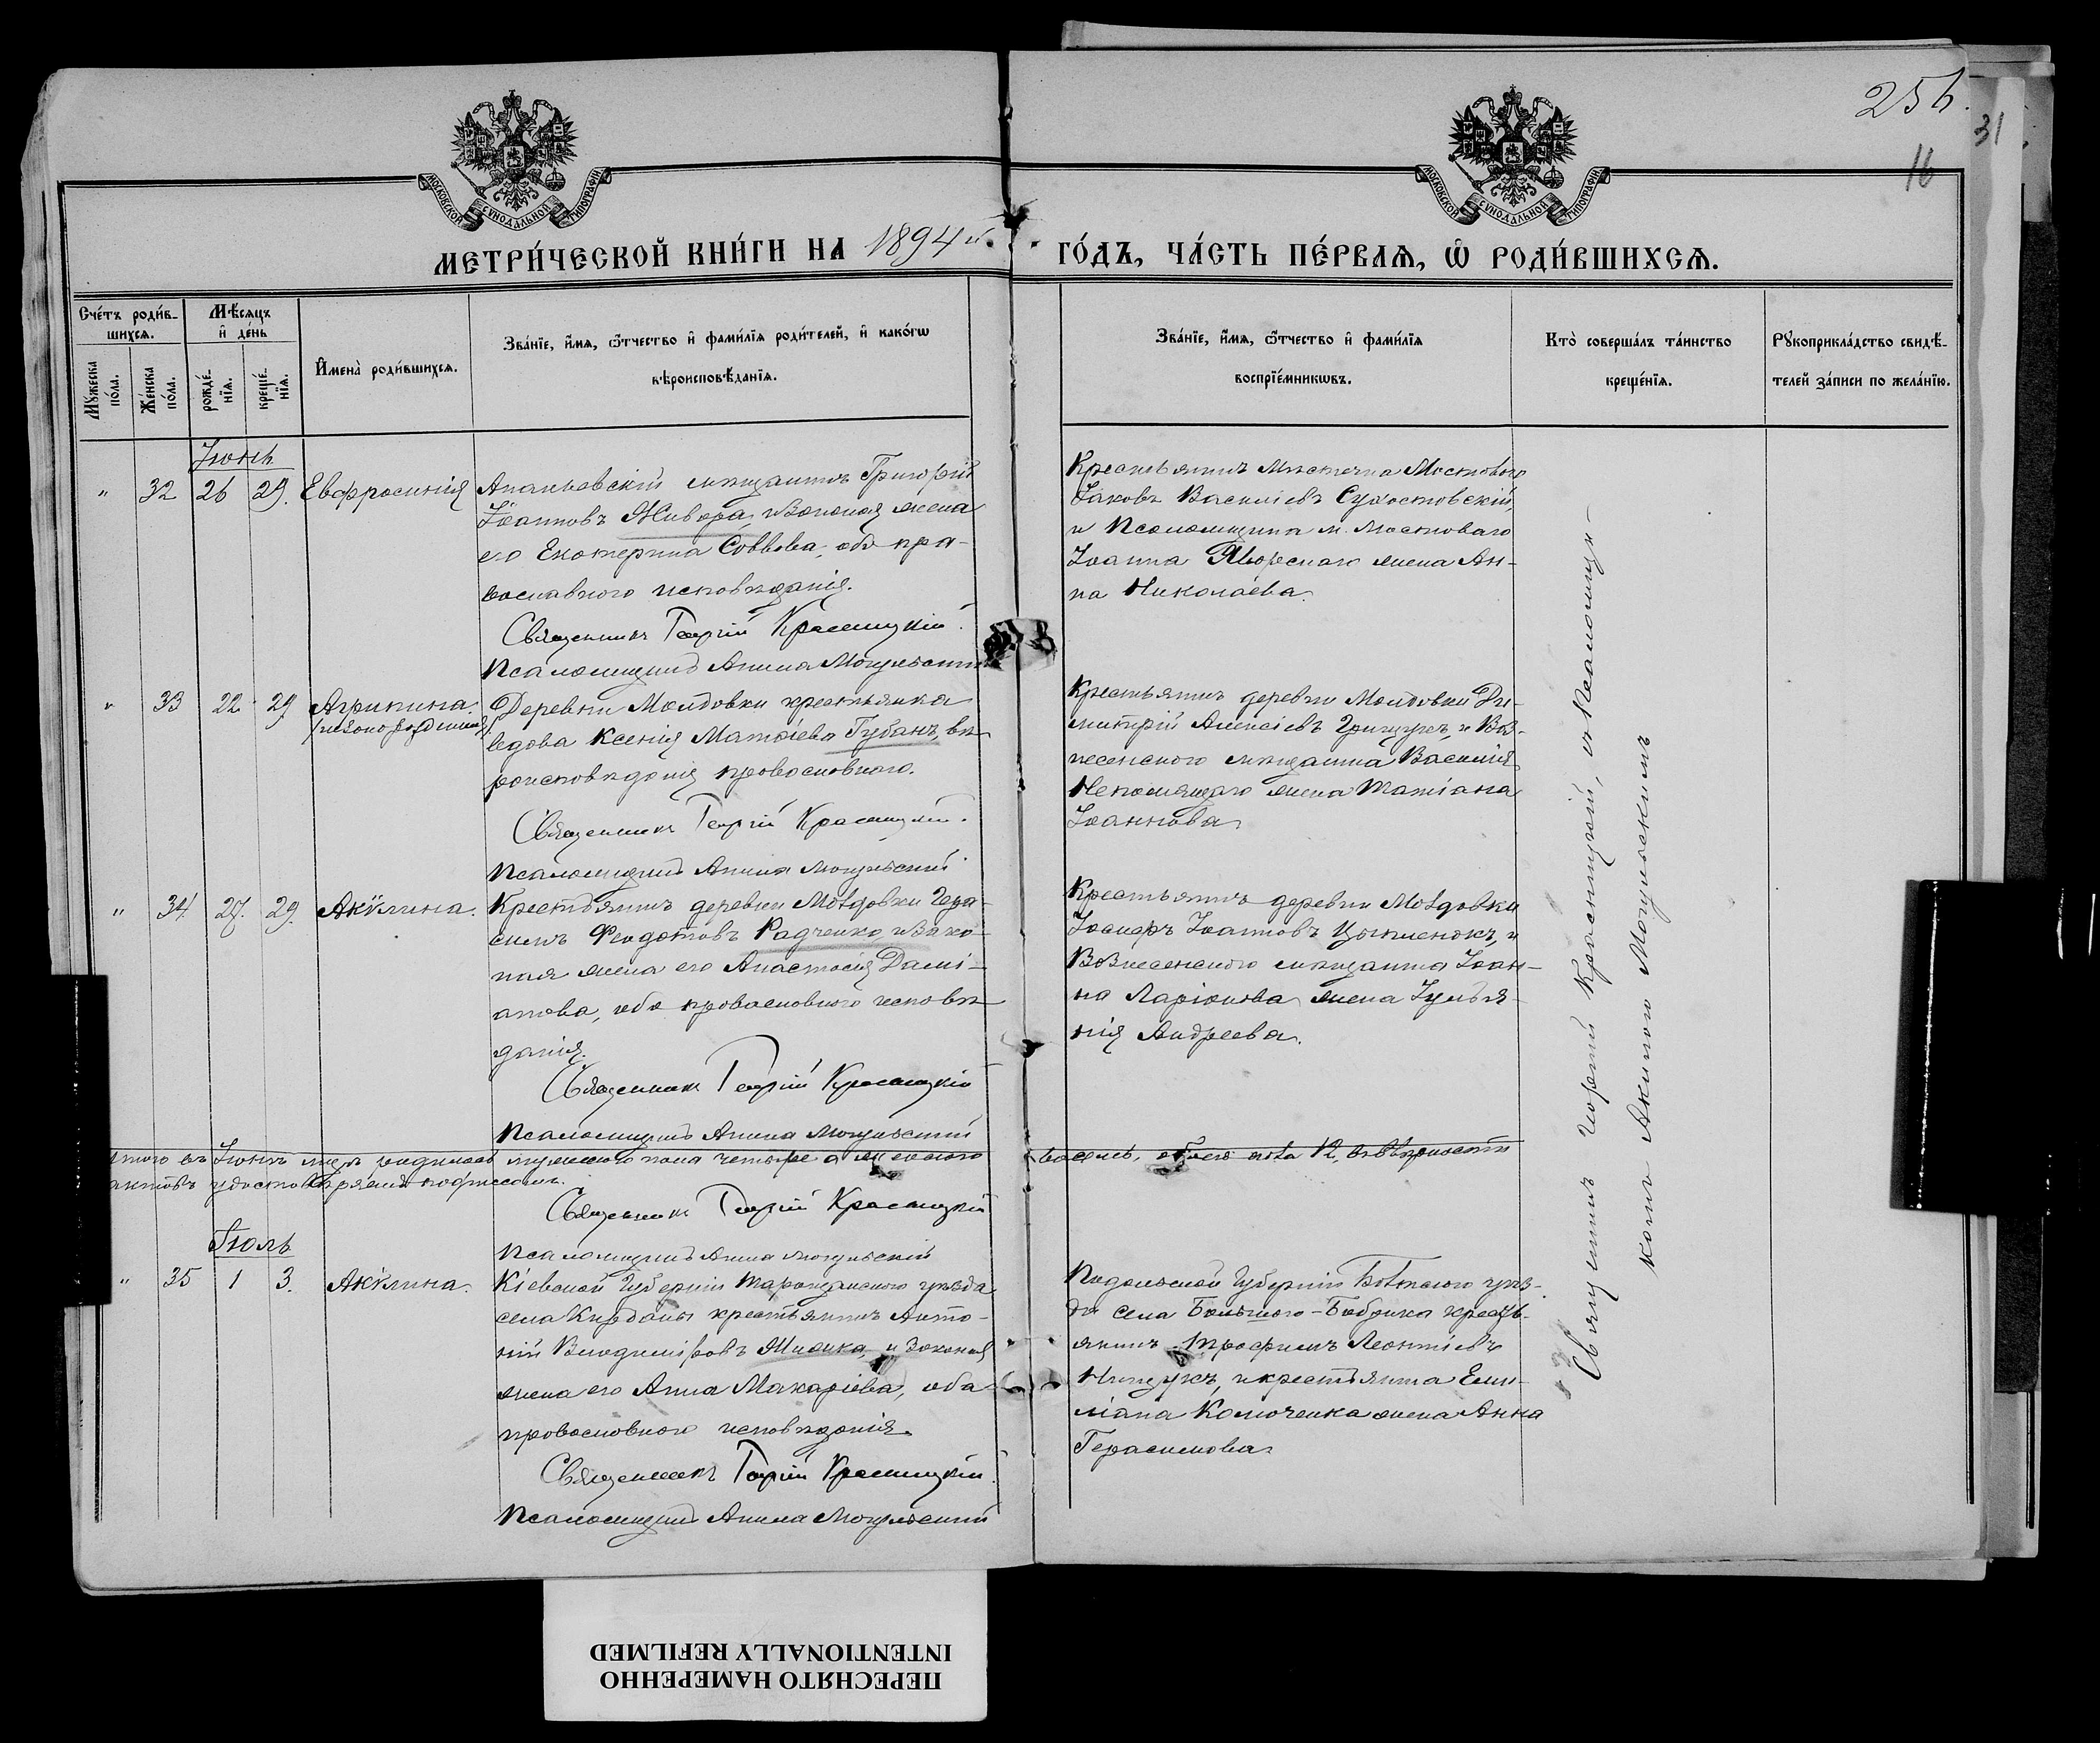 256.
31
16
МОСКОВСКОЙ СѴНОДАЛЬНОЙ ТИПОГРАФІИ
МОСКОВСКОЙ СѴНОДАЛЬНОЙ ТИПОГРАФІИ
МЕТРИ́ЧЕСКОЙ КНИ́ГИ НА 1894й. ГО́ДЪ, ЧА́СТЬ ПЕ́РВАѦ, Ѡ РОДИ́ВШИХСѦ.
Сче́тъ роди́в-
шихсѧ.
Мꙋжеска по́ла.
Же́нска по́ла.
Мѣ́сяцъ
и҆ де́нь
рожде́-
нїѧ.
креще́-
нїѧ.
И҆мена̀ роди́вшихсѧ.
Зва́нїе, и҆́мѧ, ѻ҆́тчество и҆ фами́лїѧ роди́телей, и҆ како́гѡ
вѣроисповѣ́данїѧ.
Зва́нїе, и҆́мѧ, ѻ҆́тчество и҆ фами́лїѧ
воспрїе́мникѡвъ.
Кто̀ соверша́лъ та́инство
креще́нїѧ.
Рꙋкоприкла́дство свидѣ́-
телей за́писи по жела́нїю.
Іюнь
" 32 26 29. Евфросинія
Ананьевскій мѣщанинъ Григорій
Іоанновъ Живора, и законная жена
его Екатерина Саввова, оба пра-
вославнаго исповѣданія.
Священникъ Георгій Красницкій.
Псаломщикъ Акима Могульскій
Крестьянинъ мѣстечка Мостоваго
Іаковъ Василіевъ Сухостовскій,
и Псаломщика м. Мостоваго
Іоанна Яворскаго жена Ан-
на Николаева.
" 33 22 29 Агрипина.
(незаконорожденная)
Деревни Молдовки крестьянка
вдова Ксенія Матѳіева Губанъ, вѣ-
роисповѣданія православнаго.
Священникъ Георгій Красницкій.
Псаломщикъ Акима Могульскій
Крестьянинъ деревни Молдовки Ди-
митрій Алексіевъ Грищукъ, и Воз-
несенскаго мѣщанина Василія
Непомящаго жена Татіана
Іоаннова.
" 34 27. 29. Акѵлина.
Крестьянинъ деревни Молдовки Гера-
симъ Ѳеодотовъ Радченко и зако-
ная жена его Анастасія Дамі-
анова, оба православнаго исповѣ-
данія.
Священникъ Георгій Красницкій
Псаломщикъ Акима Могульскій
Крестьянинъ деревни Молдовки
Іоаннъ Іоанновъ Цыпленокъ, и
Вознесенскаго мѣщанина Іоан-
на Ларіонова жена Іулья-
нія Андреева.
Итого въ Іюнѣ мцѣ родилось мужескаго пола четыре а женскаго восемь, обоего пола 12, въ вѣрности
актовъ удостовѣряемъ подписомъ.
Священникъ Георгій Красницкій
Псаломщикъ Акима Могульскій
Іюль
" 35 1 3. Акѵлина.
Кіевской Губерніи Таращанскаго уѣзда
села Кирданы крестьянинъ Анто-
ній Владиміровъ и законная
жена его Анна Макаріева, оба
православнаго исповѣданія.
Священникъ Георгій Красницкій.
Псаломщикъ Акима Могульскій
Подольской Губерніи Балтскаго уѣз-
да села Большого-Бобрика кресть-
янинъ Трофимъ Леонтіевъ
и крестьянина Еми-
ліана жена Анна
Герасимова.
Священникъ Георгій Красницкій, и Псаломщи-
комъ Акимою Могульскимъ
ПЕРЕСНЯТО НАМЕРЕННО
INTENTIONALLY REFILMED